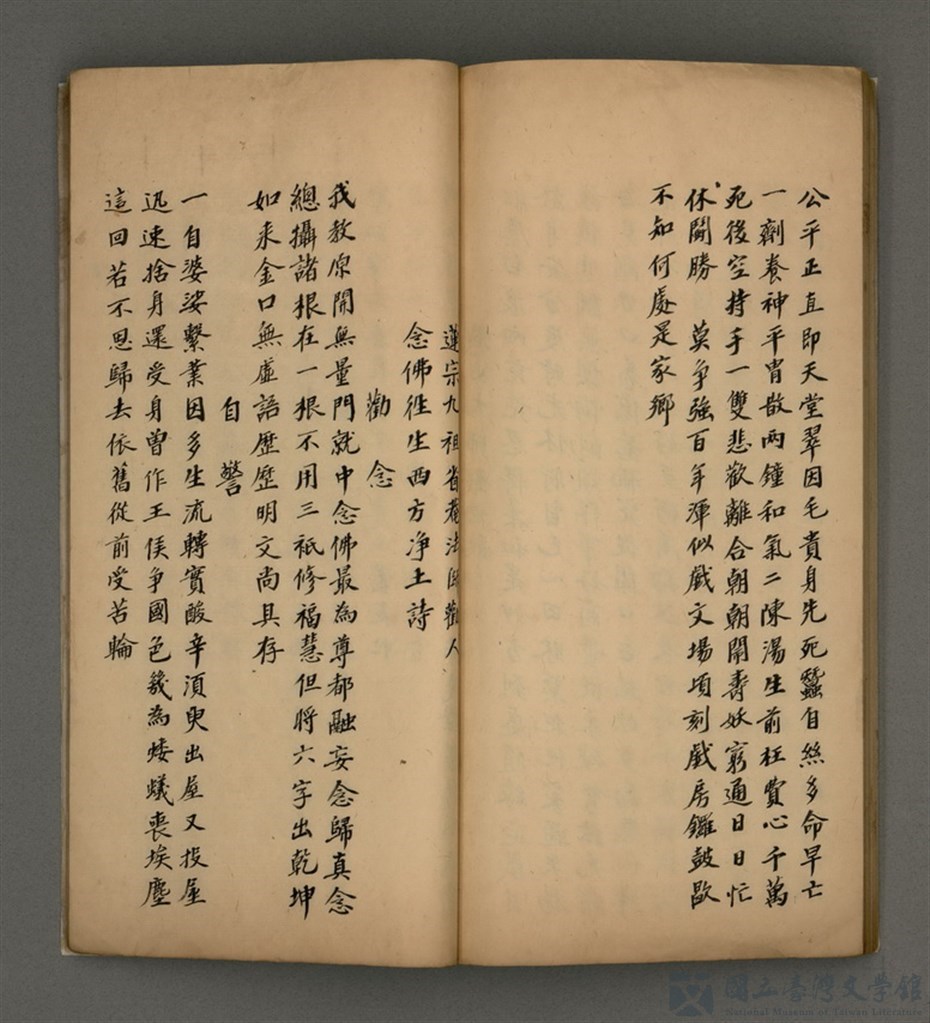 公平正直即天堂翠因毛貴身先死蠶自絲多命早亡
一劑養神平胃散两鐘和氣二陳湯生前枉費心千萬
死後空持手一雙悲歡離合朝朝鬧壽妖窮通日日忙
休鬪勝 莫争強百年渾似戲文場頃刻戲房鑼鼓歇
不知何處是家鄉
蓮宗九祖省菴法師勸人
念佛徃生西方净土詩
勸念
我教原開無量門就中念佛最為尊都融妄念歸真念
總攝諸根在一根不用三祇修福慧但將六字出乾坤
如来金口無虛語歷歷明文尚具存
自警
一自婆娑繫業因多生流轉實酸辛湏臾出屋又投屋
迅速捨身還受身曾作王侯争國色幾為螻蟻喪埃塵
這回若不思歸去依舊從前受苦輪
國立臺灣文學館
National Museum of Taiwan Literature